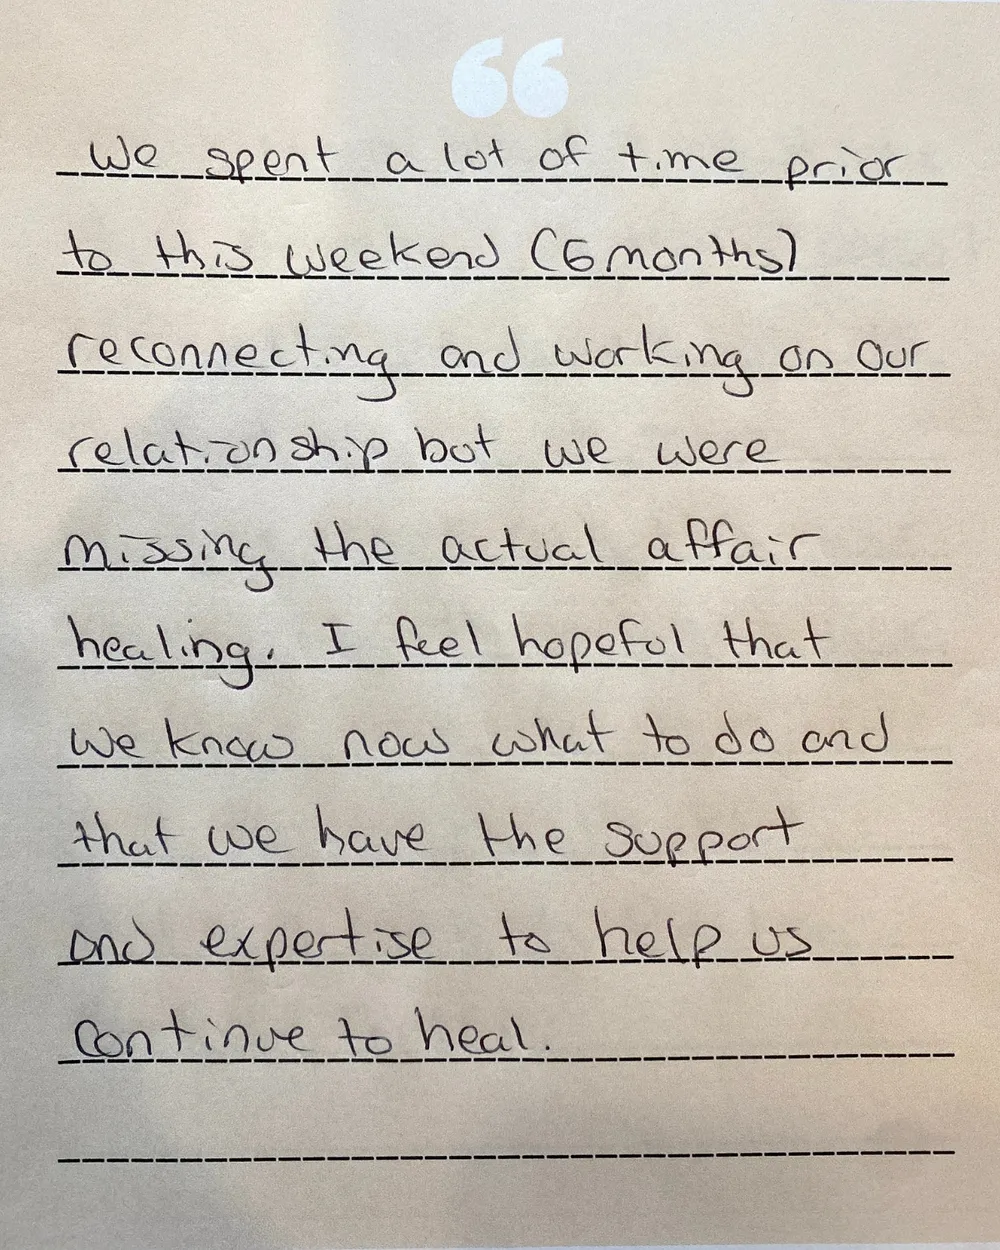 “
We spent a lot of time prior
to this weekend (6 months)
reconnecting and working on our
relationship but we were
missing the actual affair
healing. I feel hopeful that
we know now what to do and
that we have the support
and expertise to help us
continue to heal.